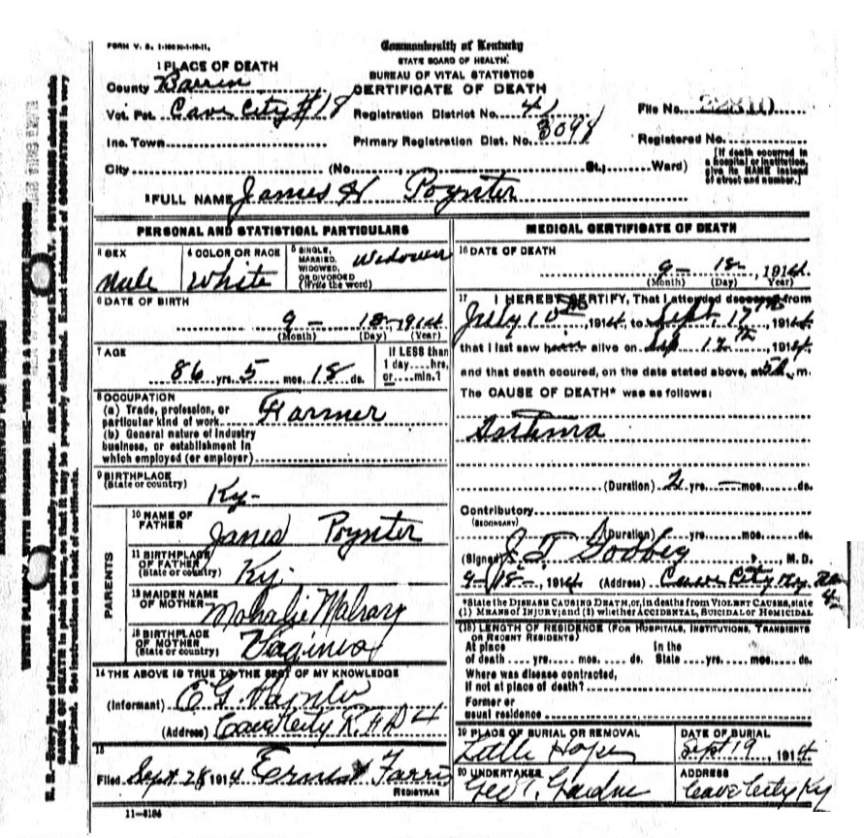 FORM V. S. 1-
Commonwealth of Kentucky
STATE BOARD OF HEALTH.
BUREAU OF VITAL STATISTICS
CERTIFICATE OF DEATH
1 PLACE OF DEATH
County Barren
Vot. Pct. Cave City #18 Registration District No. 41 File No. 22810
Inc. Town Primary Registration Dist. No. Registered No.
City (No. St.; Ward)
[If death occurred in a hospital or institution, give its NAME instead of street and number.]
2 FULL NAME James H Poynter
PERSONAL AND STATISTICAL PARTICULARS
3 SEX
Male
4 COLOR OR RACE
White
5 SINGLE, MARRIED, WIDOWED, OR DIVORCED (Write the word)
6 DATE OF BIRTH
9 - 18 - 1914
(Month) (Day) (Year)
7 AGE
86 yrs. 5 mos. 18 ds.
If LESS than 1 day....hrs, or....min.?
8 OCCUPATION
(a) Trade, profession, or particular kind of work Farmer
(b) General nature of industry business, or establishment in which employed (or employer)
9 BIRTHPLACE
(State or country)
Ky-
PARENTS
10 NAME OF FATHER
James Poynter
11 BIRTHPLACE OF FATHER
(State or country)
Ky.
12 MAIDEN NAME OF MOTHER
13 BIRTHPLACE OF MOTHER
(State or country)
14 THE ABOVE IS TRUE TO THE BEST OF MY KNOWLEDGE
(Informant) C G
(Address) Cave City R.F.D 4
15
Filed Sept 28 1914 Ernest Farris
REGISTRAR
11-5184
MEDICAL CERTIFICATE OF DEATH
16 DATE OF DEATH
9 - 18 - , 1914
(Month) (Day) (Year)
17 I HEREBY CERTIFY, That I attended deceased from
July 10th, 1914, to Sept. 17th, 1914,
that I last saw him alive on 17th, 1914,
and that death occured, on the date stated above, at 5 m.
The CAUSE OF DEATH* was as follows:
(Duration) 2 yrs. - mos. ds.
Contributory
(SECONDARY)
(Duration) yrs. mos. ds.
(Signed) J. T. Godbey, M. D.
9 - 18 -, 1914 (Address) Cave City Ky
*State the DISEASE CAUSING DEATH, or, in deaths from VIOLENT CAUSES, state
(1) MEANS OF INJURY; and (2) whether ACCIDENTAL, SUICIDAL or HOMICIDAL
(18) LENGTH OF RESIDENCE (FOR HOSPITALS, INSTITUTIONS, TRANSIENTS
OR RECENT RESIDENTS)
At place of death .... yrs. .... mos. .... ds. In the State .... yrs. .... mos. .... ds.
Where was disease contracted,
If not at place of death?
Former or
usual residence
19 PLACE OF BURIAL OR REMOVAL
Little Hope
DATE OF BURIAL
Sept 19, 1914
20 UNDERTAKER
Geo T.
ADDRESS
Cave City Ky